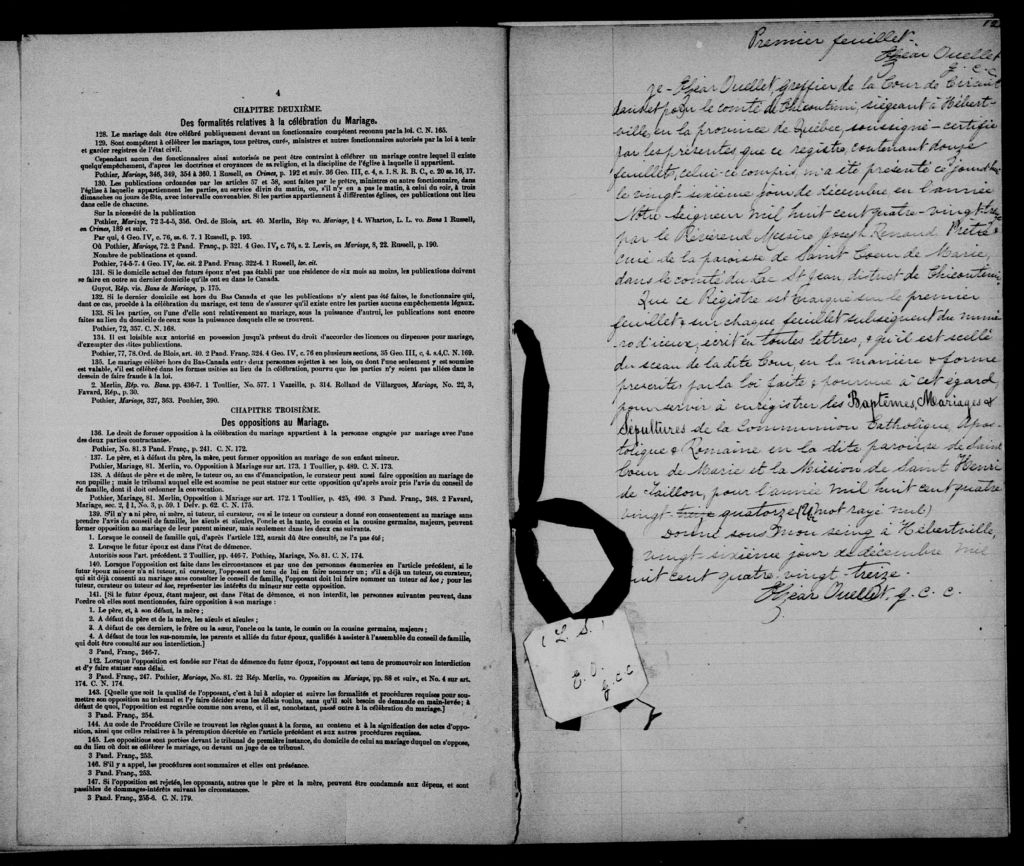 4
CHAPITRE DEUXIÈME.
Des formalités relatives à la célébration du Mariage.
128. Le mariage doit être célébré publiquement devant un fonctionnaire compétent reconnu par la loi. C. N. 165.
129. Sont compétents à célébrer les mariages, tous prêtres, curés, ministres et autres fonctionnaires autorisés par la loi à tenir
et garder registres de l'état civil.
Cependant aucun des fonctionnaires ainsi autorisés ne peut être contraint à célébrer un mariage contre lequel il existe
quelqu'empêchement, d'après les doctrines et croyances de sa religion, et la discipline de l'église à laquelle il appartient.
Pothier, Mariage, 346, 349, 354 à 360. 1 Russell, on Crimes, p. 192 et suiv. 36 Geo. III, c. 4, s. 1. S. R. B. C., c. 20 ss. 16, 17.
130. Les publications ordonnées par les articles 57 et 58, sont faites par le prêtre, ministres ou autre fonctionnaire, dans
l'église à laquelle appartiennent les parties, au service divin du matin, ou, s'il n'y en a pas le matin, à celui du soir, à trois
dimanches ou jours de fête, avec intervalle convenables. Si les parties appartiennent à différentes églises, ces publications ont lieu
dans celle de chacune.
Sur la nécessité de la publication
Pothier, Mariage, 72 3-4-5, 356. Ord. de Blois, art. 40. Merlin, Rép vo. Mariage, § 4. Wharton, L. L. vo. Bans 1 Russell,
on Crimes, 189 et suiv.
Par qui, 4 Geo. IV, c. 76, ss. 6. 7. 1 Russell, p. 193.
Où Pothier, Mariage, 72. 2 Pand. Franç., p. 321. 4 Geo. IV, c. 76, s. 2. Lewis, on Mariage, 8, 22. Russell, p. 190.
Nombre de publications et quand.
Pothier, 74-5-7. 4 Geo. IV, loc. cit. 2 Pand. Franç. 322-4. 1 Russell, loc. cit.
131. Si le domicile actuel des futurs époux n'est pas établi par une résidence de six mois au moins, les publications doivent
se faire en outre au dernier domicile qu'ils ont eu dans le Canada.
Guyot, Rép. vis. Bans de Mariage, p. 175.
132. Si le dernier domicile est hors du Bas Canada et que les publications n'y aient pas été faites, le fonctionnaire qui,
dans ce cas, procède à la célébration du mariage, est tenu de s'assurer qu'il existe entre les parties aucuns empêchements légaux.
133. Si les parties, ou l'une d'elle sont relativement au mariage, sous la puissance d'autrui, les publications sont encore
faites au lieu du domicile de ceux sous la puissance desquels elle se trouvent.
Pothier, 72, 357. C. N. 168.
134. Il est loisible aux autorité en possession jusqu'à présent du droit d'accorder des licences ou dispenses pour mariage,
d'exempter des dites publications.
Pothier, 77, 78. Ord. de Blois, art. 40. 2 Pand. Franç. 324. 4 Geo. IV, c. 76 en plusieurs sections, 35 Geo. III, c. 4. s. 4, C. N. 169.
135. Le mariage célébré hors du Bas-Canada entre deux personnes sujettes à ses lois, ou dont l'une seulement y est soumise
est valable, s'il est célébré dans les formes usitées au lieu de la célébration, pourvu que les parties n'y soient pas allées dans le
dessein de faire fraude à la loi.
2. Merlin, Rép. vo. Bans. pp. 436-7. 1 Toullier, No. 577. 1 Vazeille, p. 314. Rolland de Villargues, Mariage, No. 22, 3,
Favard, Rép., p. 30.
Pothier, Mariage, 327, 363. Pouhier, 390.
CHAPITRE TROISIÈME.
Des oppositions au Mariage.
136. Le droit de former opposition à la célébration du mariage appartient à la personne engagée par mariage avec l'une
des deux parties contractantes.
Pothier, No. 81. 3 Pand. Franç., p. 241. C. N. 172.
137. Le père, et à défaut du père, la mère, peut former opposition au mariage de son enfant mineur.
Pothier, Mariage, 81. Merlin, vo. Opposition à Mariage sur art. 173. 1 Toullier, p. 489. C. N. 173.
138. A défaut de père et de mère, le tuteur ou, au cas d'émancipation, le curateur peut aussi faire opposition au mariage de
son pupille ; mais le tribunal auquel elle est soumise ne peut statuer sur cette opposition qu'après avoir pris l'avis du conseil de
famille, dont il doit ordonner la convocation.
Pothier, Mariage, 81. Merlin, Opposition à Mariage sur art. 172. 1 Toullier, p. 425, 490. 3 Pand. Franç., 248. 2 Favard,
Mariage, sec. 2, § 1, No. 3, p. 59. 1 Delv. p. 62. C. N. 175.
139. S'il n'y a ni père, ni mère, ni tuteur, ni curateur, ou si le tuteur ou curateur a donné son consentement au mariage sans
prendre l'avis du conseil de famille, les aïeuls et aïeules, l'oncle et la tante, le cousin et la cousine germains, majeurs, peuvent
former opposition au mariage de leur parent mineur, mais seulement dans les deux cas suivants.
1. Lorsque le conseil de famille qui, d'après l'article 122, aurait dû être consulté, ne l'a pas été ;
2. Lorsque le futur époux est dans l'état de démence.
Autorités sous l'art. précédent. 2 Toullier, pp. 446-7. Pothier, Mariage, No. 81. C. N. 174.
140. Lorsque l'opposition est faite dans les circonstances et par une des personnes énumérées en l'article précédent, si le
futur époux mineur n'a ni tuteur, ni curateur, l'opposant est tenu de lui en faire nommer un ; s'il a déjà un tuteur, ou curateur,
qui ait déjà consenti au mariage sans consulter le conseil de famille, l'opposant doit lui faire nommer un tuteur ad hoc ; pour les
tuteur, curateur ou tuteur ad hoc, représenter les intérêts du mineur sur cette opposition.
141. [Si le futur époux, étant majeur, est dans l'état de démence, et non interdit, les personnes suivantes peuvent, dans
l'ordre où elles sont mentionnées, faire opposition à son mariage :
1. Le père, et, à son défaut, la mère ;
2. A défaut du père et de la mère, les aïeuls et aïeules ;
3. A défaut de ces derniers, le frère ou la sœur, l'oncle ou la tante, le cousin ou la cousine germains, majeurs ;
4. A défaut de tous les sus-nommés, les parents et alliés du futur époux, qualifiés à assister à l'assemblée du conseil de famille,
qui doit être consulté sur son interdiction.]
3 Pand. Franç., 246-7.
142. Lorsque l'opposition est fondée sur l'état de démence du futur époux, l'opposant est tenu de promouvoir son interdiction
et d'y faire statuer sans délai.
3 Pand. Franç., 247. Pothier, Mariage, No. 81. 22 Rép. Merlin, vo. Opposition au Mariage, pp. 88 et suiv., et No. 4 sur art.
174. C. N. 174.
143. [Quelle que soit la qualité de l'opposant, c'est à lui à adopter et suivre les formalités et procédures requises pour sou-
mettre son opposition au tribunal et l'y faire décider sous les délais voulus, sans qu'il soit besoin de demande en main-levée ; à
défaut de quoi, l'opposition est regardée comme non avenue, et il est, nonobstant, passé outre à la célébration du mariage.]
3 Pand. Franç., 254.
144. Au code de Procédure Civile se trouvent les règles quant à la forme, au contenu et à la signification des actes d'oppo-
sition, ainsi que celles relatives à la péremption décrétée en l'article précédent et aux autres procédures requises.
145. Les oppositions sont portées devant le tribunal de première instance, du domicile de celui au mariage duquel on s'oppose,
ou du lieu où doit se célébrer le mariage, ou devant un juge de ce tribunal.
3 Pand. Franç., 253.
146. S'il y a appel, les procédures sont sommaires et elles ont préséance.
3 Pand. Franç., 253.
147. Si l'opposition est rejetée, les opposants, autres que le père et la mère, peuvent être condamnés aux dépens, et sont
passibles de dommages-intérêts suivant les circonstances.
3 Pand. Franç., 255-6. C. N. 179.
Premier feuillet.
Elzéar Ouellet
g. c. c.
Je - Elzéar Ouellet, greffier de la Cour de Circuit
dans et pour le comté de Chicoutimi, siégeant à Hébert-
ville, en la province de Québec, soussigné - certifie
par les présentes que ce registre, contenant douze
feuillet, celui-ci compris, m'a été présenté ce jourd'hui
le vingt-sixième jour de décembre en l'année
Notre seigneur mil huit cent quatre-vingt-treize
par le Révérend Messire Joseph Renaud Prêtre
curé de la paroisse de Saint Coeur de Marie,
dans le comté du Lac St Jean, district de Chicoutimi.
Que ce Régistre est marqué sur le premier
feuillet & sur chaque feuillet subséquent du numé
ro d'iceux, écrit en toutes lettres, & qu'il est scellé
du sceau de la dite Cour, en la manière & forme
présentes par la loi faite & pourvue à cet égard,
pour servir à enregistrer les Baptêmes, Mariages &
Sépultures de la Communion Catholique, Apos-
tolique & Romaine en la dite paroisse de Saint
Coeur de Marie et la Mission de Saint Henri
de Taillon, pour l'année mil huit cent quatre
vingt quatorze (mot rayé nul)
Donné sous mon seing à Hébertville,
vingt sixième jour de décembre mil
huit cent quatre-vingt-treize.
Elzéar Ouellet, g. c. c.
( L. S. )
E. O.
g. c. c